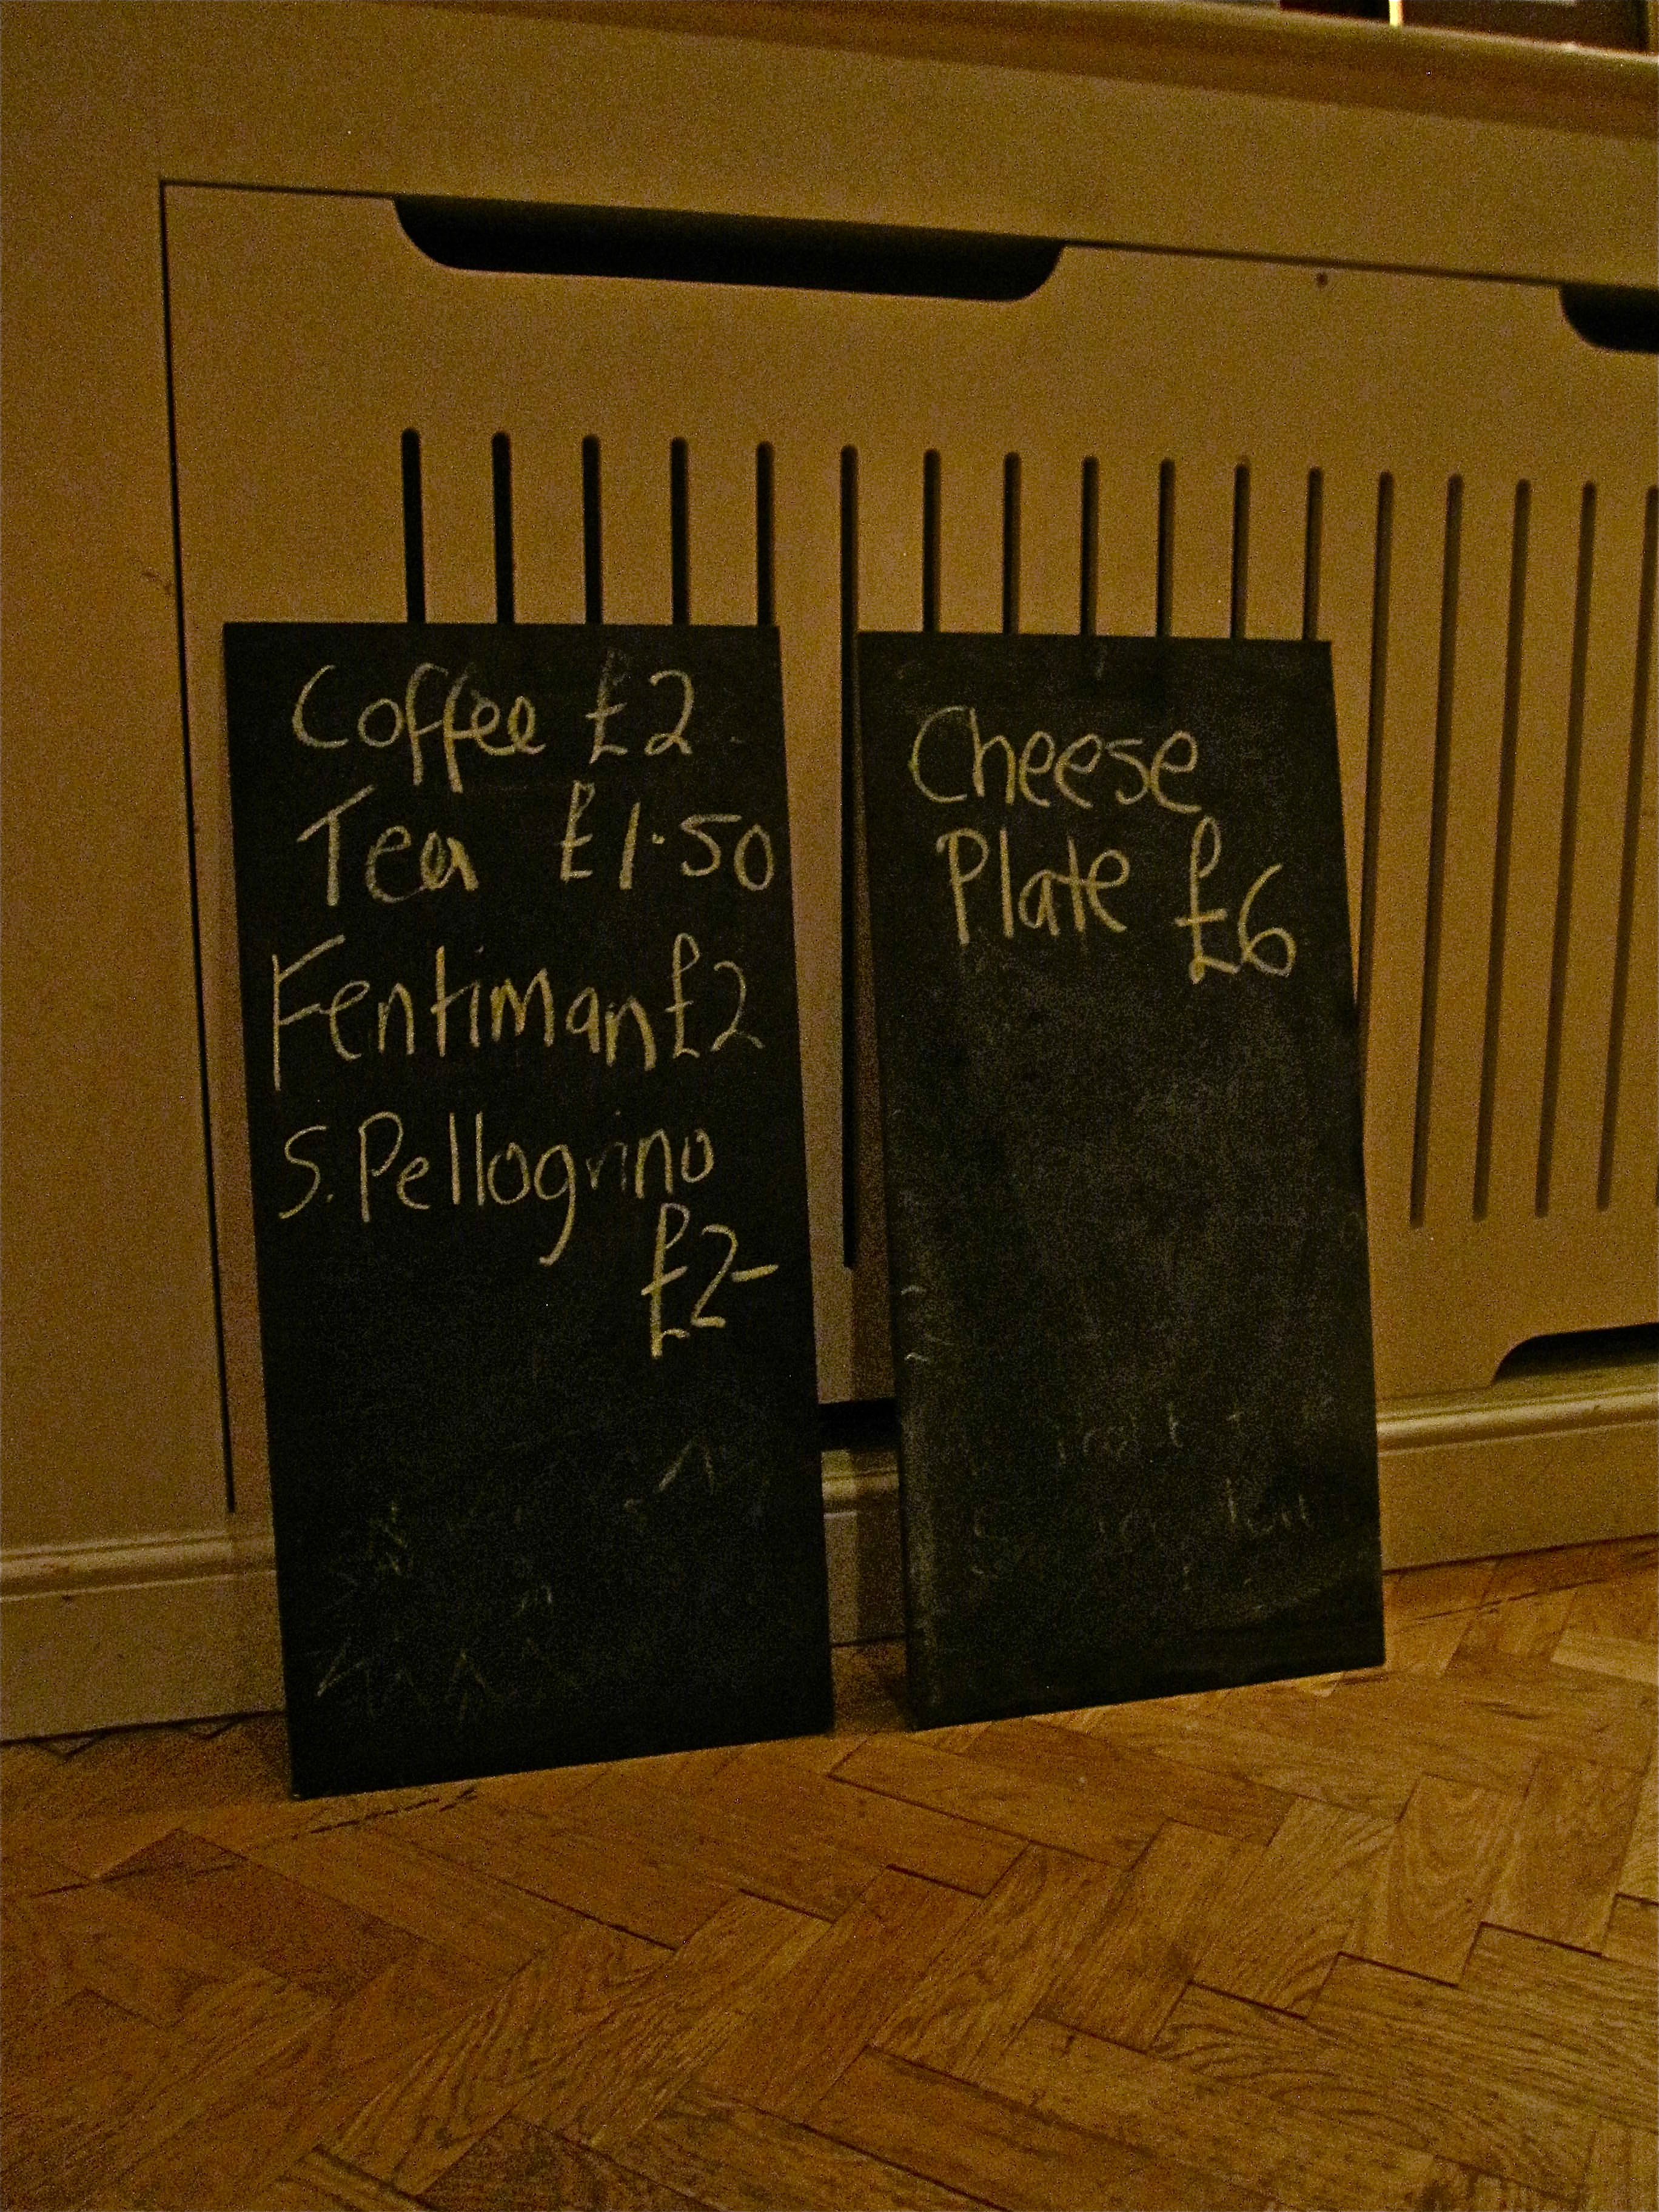 Coffee £2
Tea £1.50
Fentiman £2
S. Pellogrino
£2-
Cheese
Plate £6